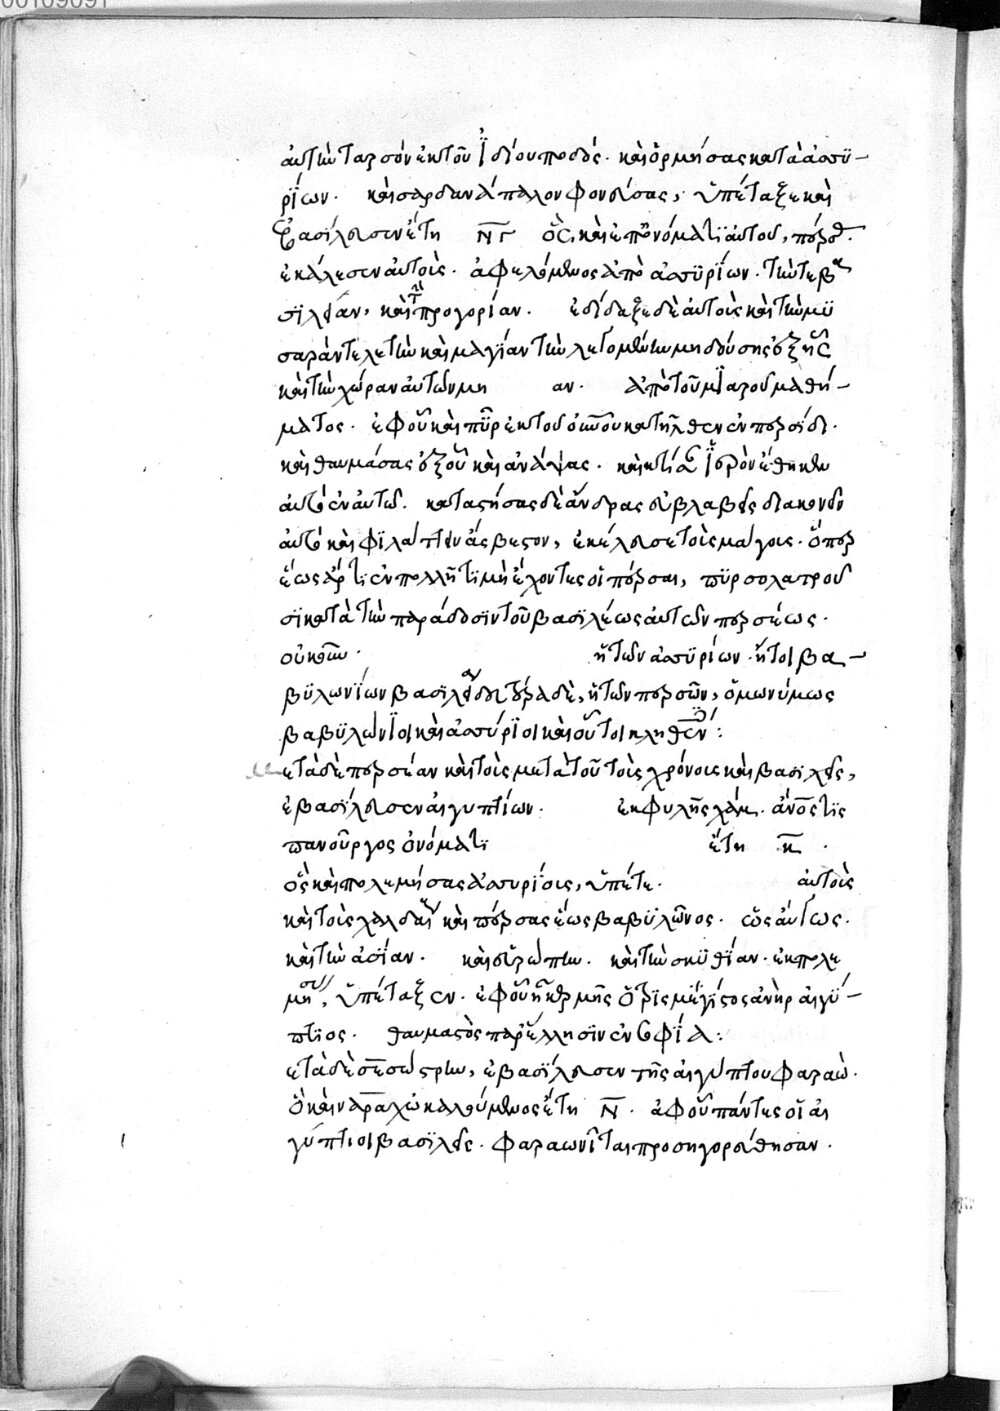 αὐτὴν ταρσὸν ἐκ τοῦ ἰδίου ποδός· καὶ ὁρμήσας κατὰ ἀσσϋ-
ρίων· καὶ σαρδανάπαλον φονεύσας, ὑπέταξε καὶ
ἐβασίλευσεν ἔτη ν̅γ̅ ὃς καὶ ἐπ' ὀνόματι αὐτοῦ, πέρσας
ἐκάλεσεν αὐτοὺς· ἀφελόμενος ἀπὸ ἀσσυρίων· τήν τε βα
σιλείαν, καὶ τὴν προγορίαν. ἐδίδαξε δὲ αὐτοὺς καὶ τὴν μυ
σαρὰν τελετὴν καὶ μαγίαν τὴν λεγομένην μηδούσης ἐξ ἧς
καὶ τὴν χώραν αὐτῶν μη αν· ἀπὸ τοῦ μιαροῦ μαθή-
ματος· ἐφ' οὗ καὶ πῦρ ἐκ τοῦ οὐνοῦ κατῆλθεν ἐν περσίδι·
καὶ θαυμάσας ἐξ οὗ καὶ ἀνάψας· καὶ κτίσας ἱερὸν ἔθηκεν
αὐτὸ ἐν αὐτῷ. καταστήσας δὲ ἄνδρας εὐλαβεῖς διακονεῖν
αὐτὸ καὶ φυλάττειν ἄσβεστον, ἐκέλευσε τοὺς μάγους· ὅπερ
ἕως ἄρτι ἐν πολλῇ τιμῇ ἔχοντες οἱ πέρσαι, πυρσολατροῦ
σι κατὰ τὴν παράδοσιν τοῦ βασιλέως αὐτῶν περσέως·
οὐκοῦν· ἡ τῶν ἀσσυρίων ἤτοι βα-
βυλωνίων βασιλεία δευτέρα δὲ, ἡ τῶν περσῶν, ὁμωνύμως
βαβυλώνιοι καὶ ἀσσύριοι καὶ οὗτοι κληθέν:
Μετὰ δὲ περσέαν καὶ τοὺς μετὰ τοῦτοὺς χρόνους καὶ βασιλεῖς,
ἐβασίλευσεν αἰγυπτίων· ἐκ φυλῆς χάμ· ἀν̅ο̅ς τις
πανοῦργος ὀνόματι ἔτη κ̅ ·
ὃς καὶ πολεμήσας ἀσσυρίοις, ὑπέτα· αὐτοὺς
καὶ τοὺς χαλδαίους καὶ πέρσας ἕως βαβυλῶνος· ὡσαύτως·
καὶ τὴν ἀσίαν· καὶ εὐρώπην· καὶ τὴν σκυθίαν· ἐκ πολε
μη, ὑπέταξεν· ἐφ' οὗ ἦν ἑρμῆς ὁ τρὶς μέγιστος ἀνὴρ αἰγύ-
πτιος· θαυμαστὸς παρ' ἕλλησιν ἐν σοφίᾳ:
ετὰ δὲ σέσωστριν, ἐβασίλευσεν τῆς αἰγύπτου φαραώ·
ὁ καὶ ναραχὼ καλούμενος ἔτη ν̅· ἀφ' οὗ πάντες οἱ αἰ
γύπτιοι βασιλεῖς· φαραωνῖται προσηγορεύθησαν·